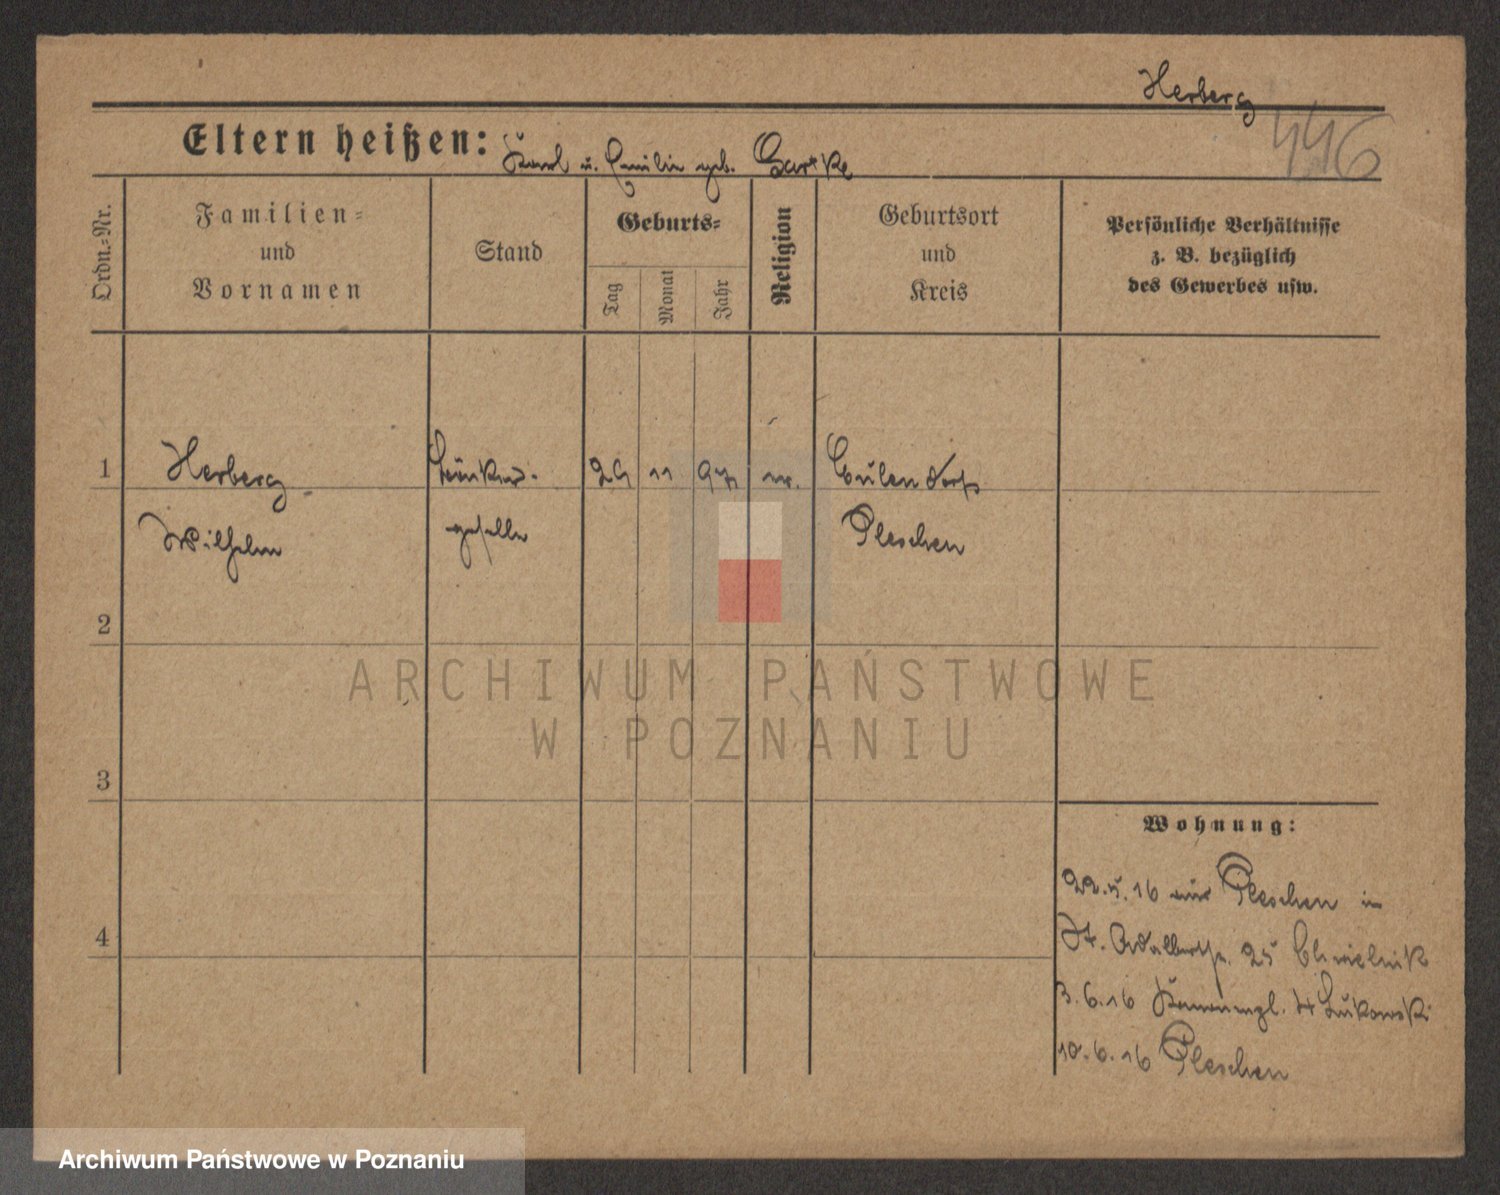 Herberg
446
Eltern heißen: Karl u. Emilie geb. Gartke
Ordn.=Nr.
Familien=
und
Vornamen
Stand
Geburts=
Tag
Monat
Jahr
Religion
Geburtsort
und
Kreis
Persönliche Verhältnisse
z. B. bezüglich
des Gewerbes usw.
1 Herberg 24 11 97 Eulendorf
Wilhelm geselle Pleschen
2
3
4
ARCHIWUM PAŃSTWOWE
W POZNANIU
Wohnung:
22.5.16 aus Pleschen in
St. Adalbertstr. 25 Chmielnik
3.6.16 4 Lukowski
10.6.16 Pleschen
Archiwum Państwowe w Poznaniu